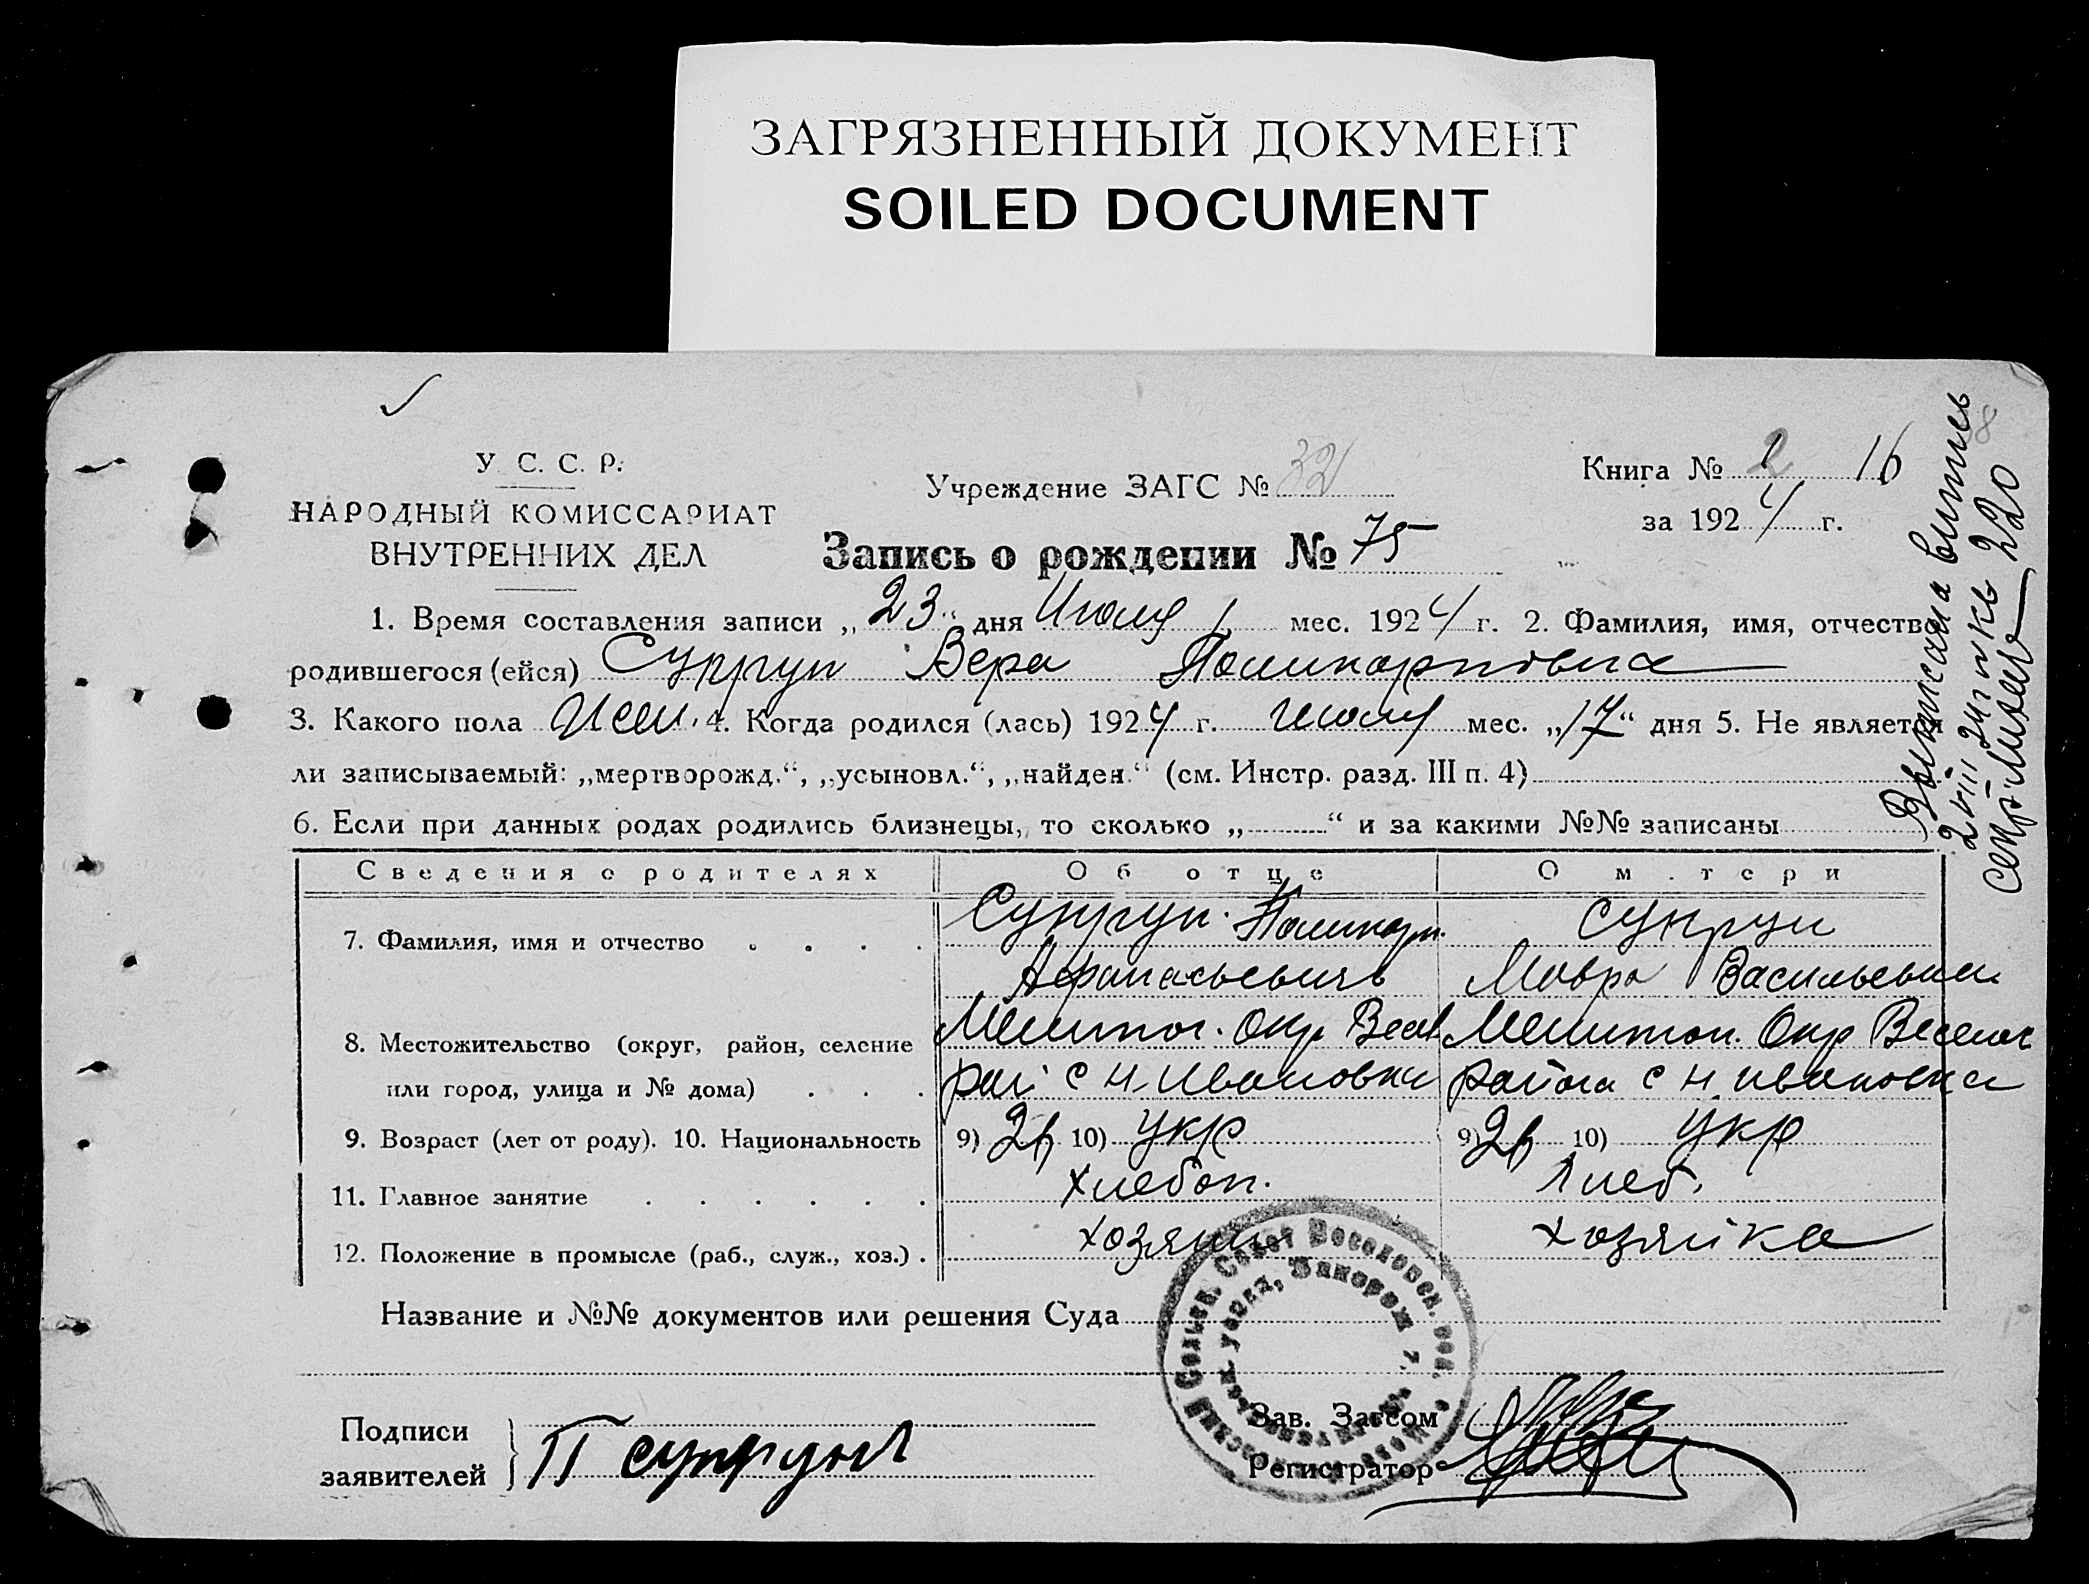 ЗАГРЯЗНЕННЫЙ ДОКУМЕНТ
SOILED DOCUMENT
У. С. С. Р.
НАРОДНЫЙ КОМИССАРИАТ
ВНУТРЕННИХ ДЕЛ
Учреждение ЗАГС №
Книга № 16
за 1924 г.
Запись о рождении № 75
1. Время составления записи „23“ дня Июля мес. 1924 г. 2. Фамилия, имя, отчество
родившегося (ейся) Супрун Вера Поликарповна
3. Какого пола жен. 4. Когда родился (лась) 1924 г. июля мес. „17“ дня 5. Не является
ли записываемый: „мертворожд.“, „усыновл.“, „найден.“ (см. Инстр. разд. III п. 4)
6. Если при данных родах родились близнецы, то сколько „ “ и за какими №№ записаны
Сведения о родителях Об отце О м.тери
7. Фамилия, имя и отчество Супрун. Поликарп. Супрун
Афанасьевичь Мавра Васильевна
8. Местожительство (округ, район, селение Мелитоп. Окр Весел Мелитоп. Окр Веселог
или город, улица и № дома) рай с Н-Ивановки района с Н Ивановки
9. Возраст (лет от роду). 10. Национальность 9) 26 10) Укр 9) 26 10) Укр
11. Главное занятие Хлебоп. Хлеб.
12. Положение в промысле (раб., служ., хоз.) хозяин хозяйка
Название и №№ документов или решения Суда
Подписи
заявителей П супрун
Зав. Загсом
Регистратор
Выписана выпись